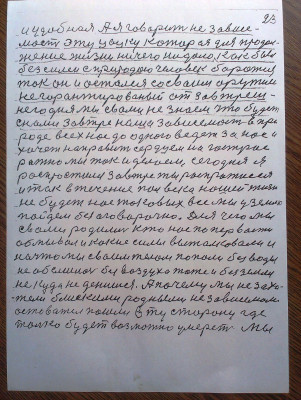 23
и удобная А я говорит не зависе-
мость эту цацку которая для продол-
жения жизни ничего ни дала. Как был
без силен с природою человек боротися
так он и остался со своим оружием
не гарантированый от завтрешн-
него дня мы с вами не знаем что будет
с нами завтра наша зависемость в при-
роде всех нас до одного ведет за нос и
хочет направить сердцем на
мы так и делаем сегодня ся
роспростими завтре ты роспростиеся
и так в течение пол века нашей жизни
не будет нас таковых все мы у землю
пойдем без оговорочно. Для чего мы
с вами родилися кто нас по первости
обмивал и какие силы виталковали и
на что мы своим телом попали без воды
не обселися без воздуха тоже и без земли
не куда не денишся. А почему мы не захо-
тели близкими родными не зависимыми
оставатся пошли в ту сторону где
только будет возможно умереть мы